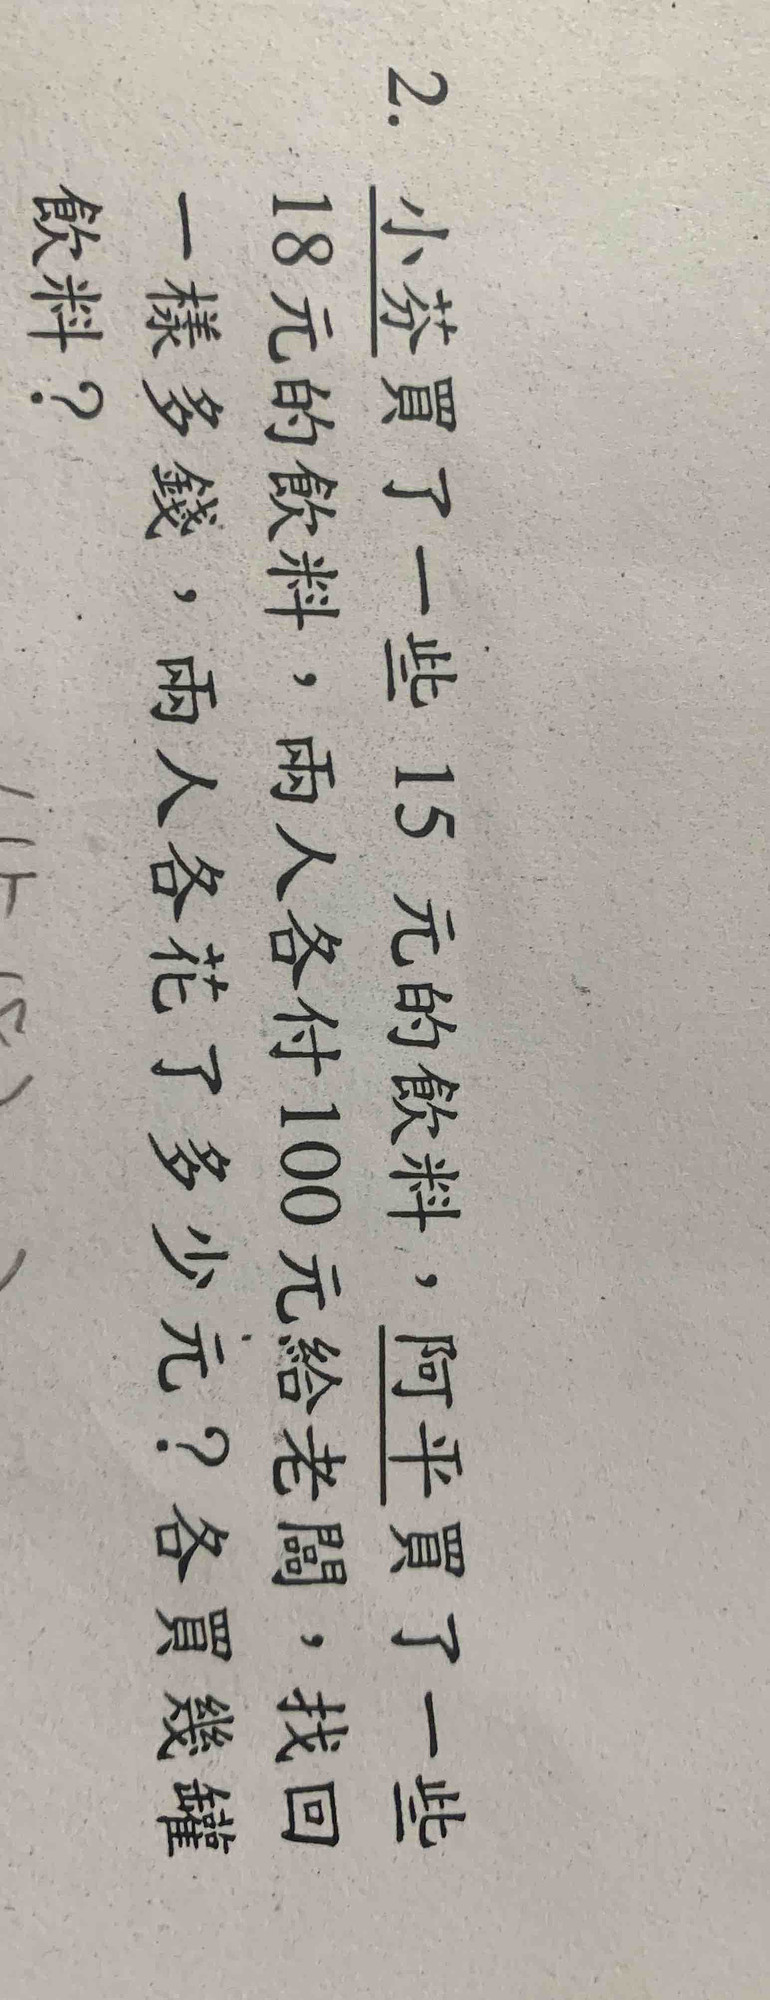 2. 小芬買了一些 15 元的飲料，阿平買了一些
18元的飲料，兩人各付100元給老闆，找回
一樣多錢，兩人各花了多少元？各買幾罐
飲料？